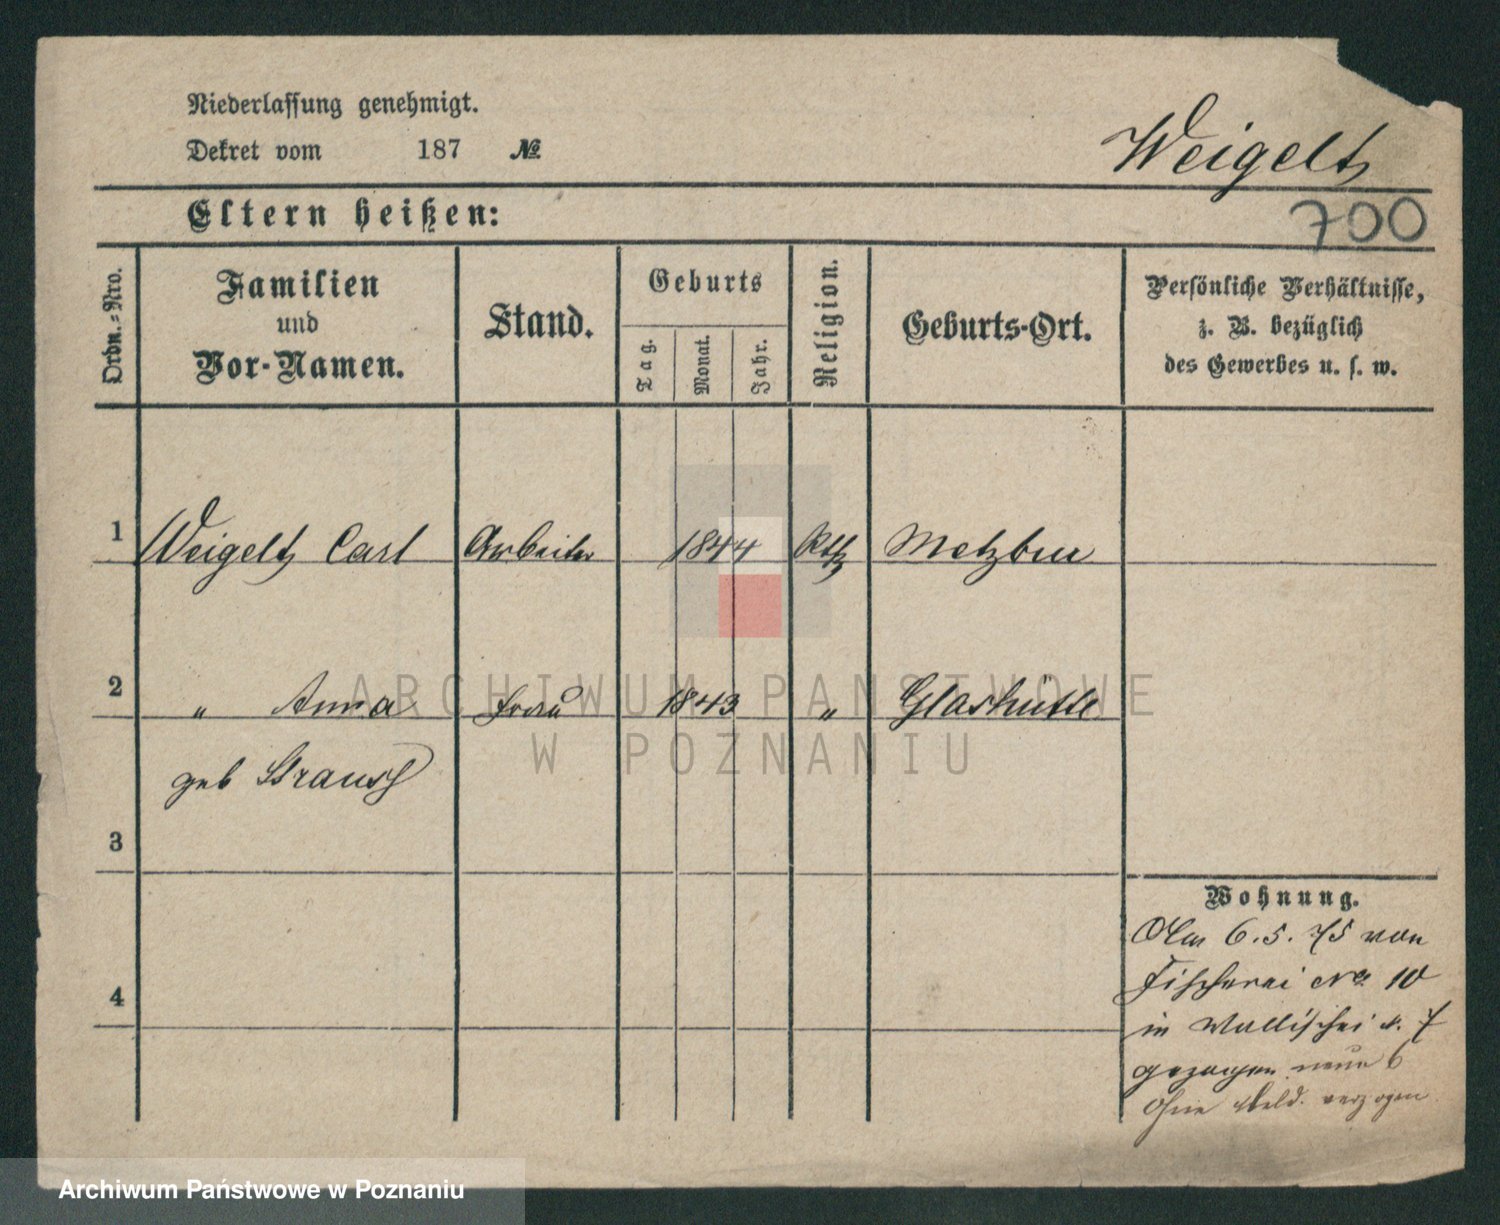 Niederlassung genehmigt.
Dekret vom 187 №
Weigelt
Eltern heißen:
700
Ordn.-Nro.
Familien
und
Vor-Namen.
Stand.
Geburts
Tag.
Monat.
Jahr.
Religion.
Geburts-Ort.
Persönliche Verhältnisse,
z. B. bezüglich
des Gewerbes u. s. w.
1 Weigelt Carl Arbeiter 1844 Kth Metzbru
2 " Anna Frau 1843 " Glashütte
geb Strauch
3
4
Wohnung.
Am 6.5.75 von
Fischerei No 10
in Wallischei N. 7
gezogen neue 6
Ohne Meld. verzogen
ARCHIWUM PAŃSTWOWE
W POZNANIU
Archiwum Państwowe w Poznaniu